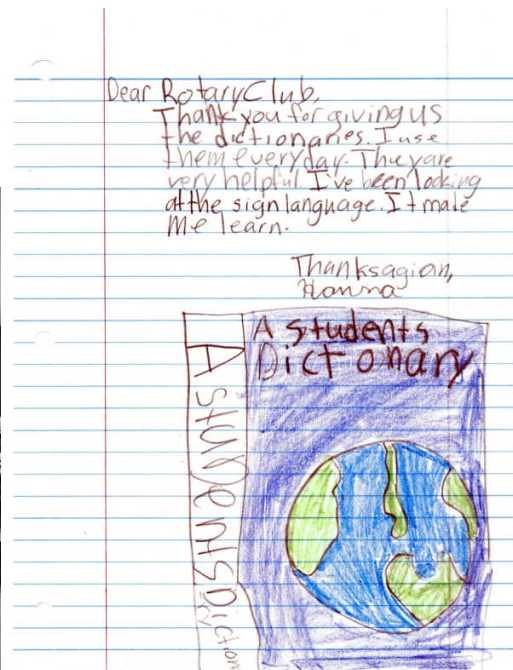 Dear Rotary Club,
Thank you for giving us
the dictionaries. I use
them everyday. They are
very helpful. I've been looking
at the sign language. It make
me learn.
Thanksagian,
Hanna
A students
Dictonary
A students Diction
ry